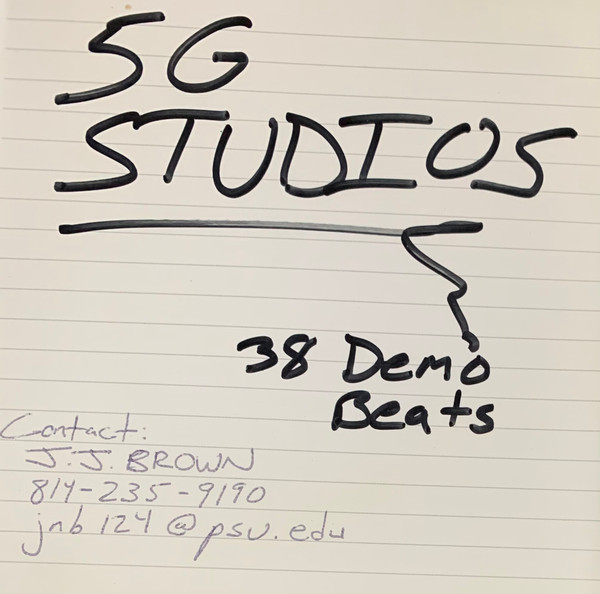 5G
STUDIOS
38 Demo
Beats
Contact:
J.J. BROWN
814-235-9190
jnb124@psu.edu